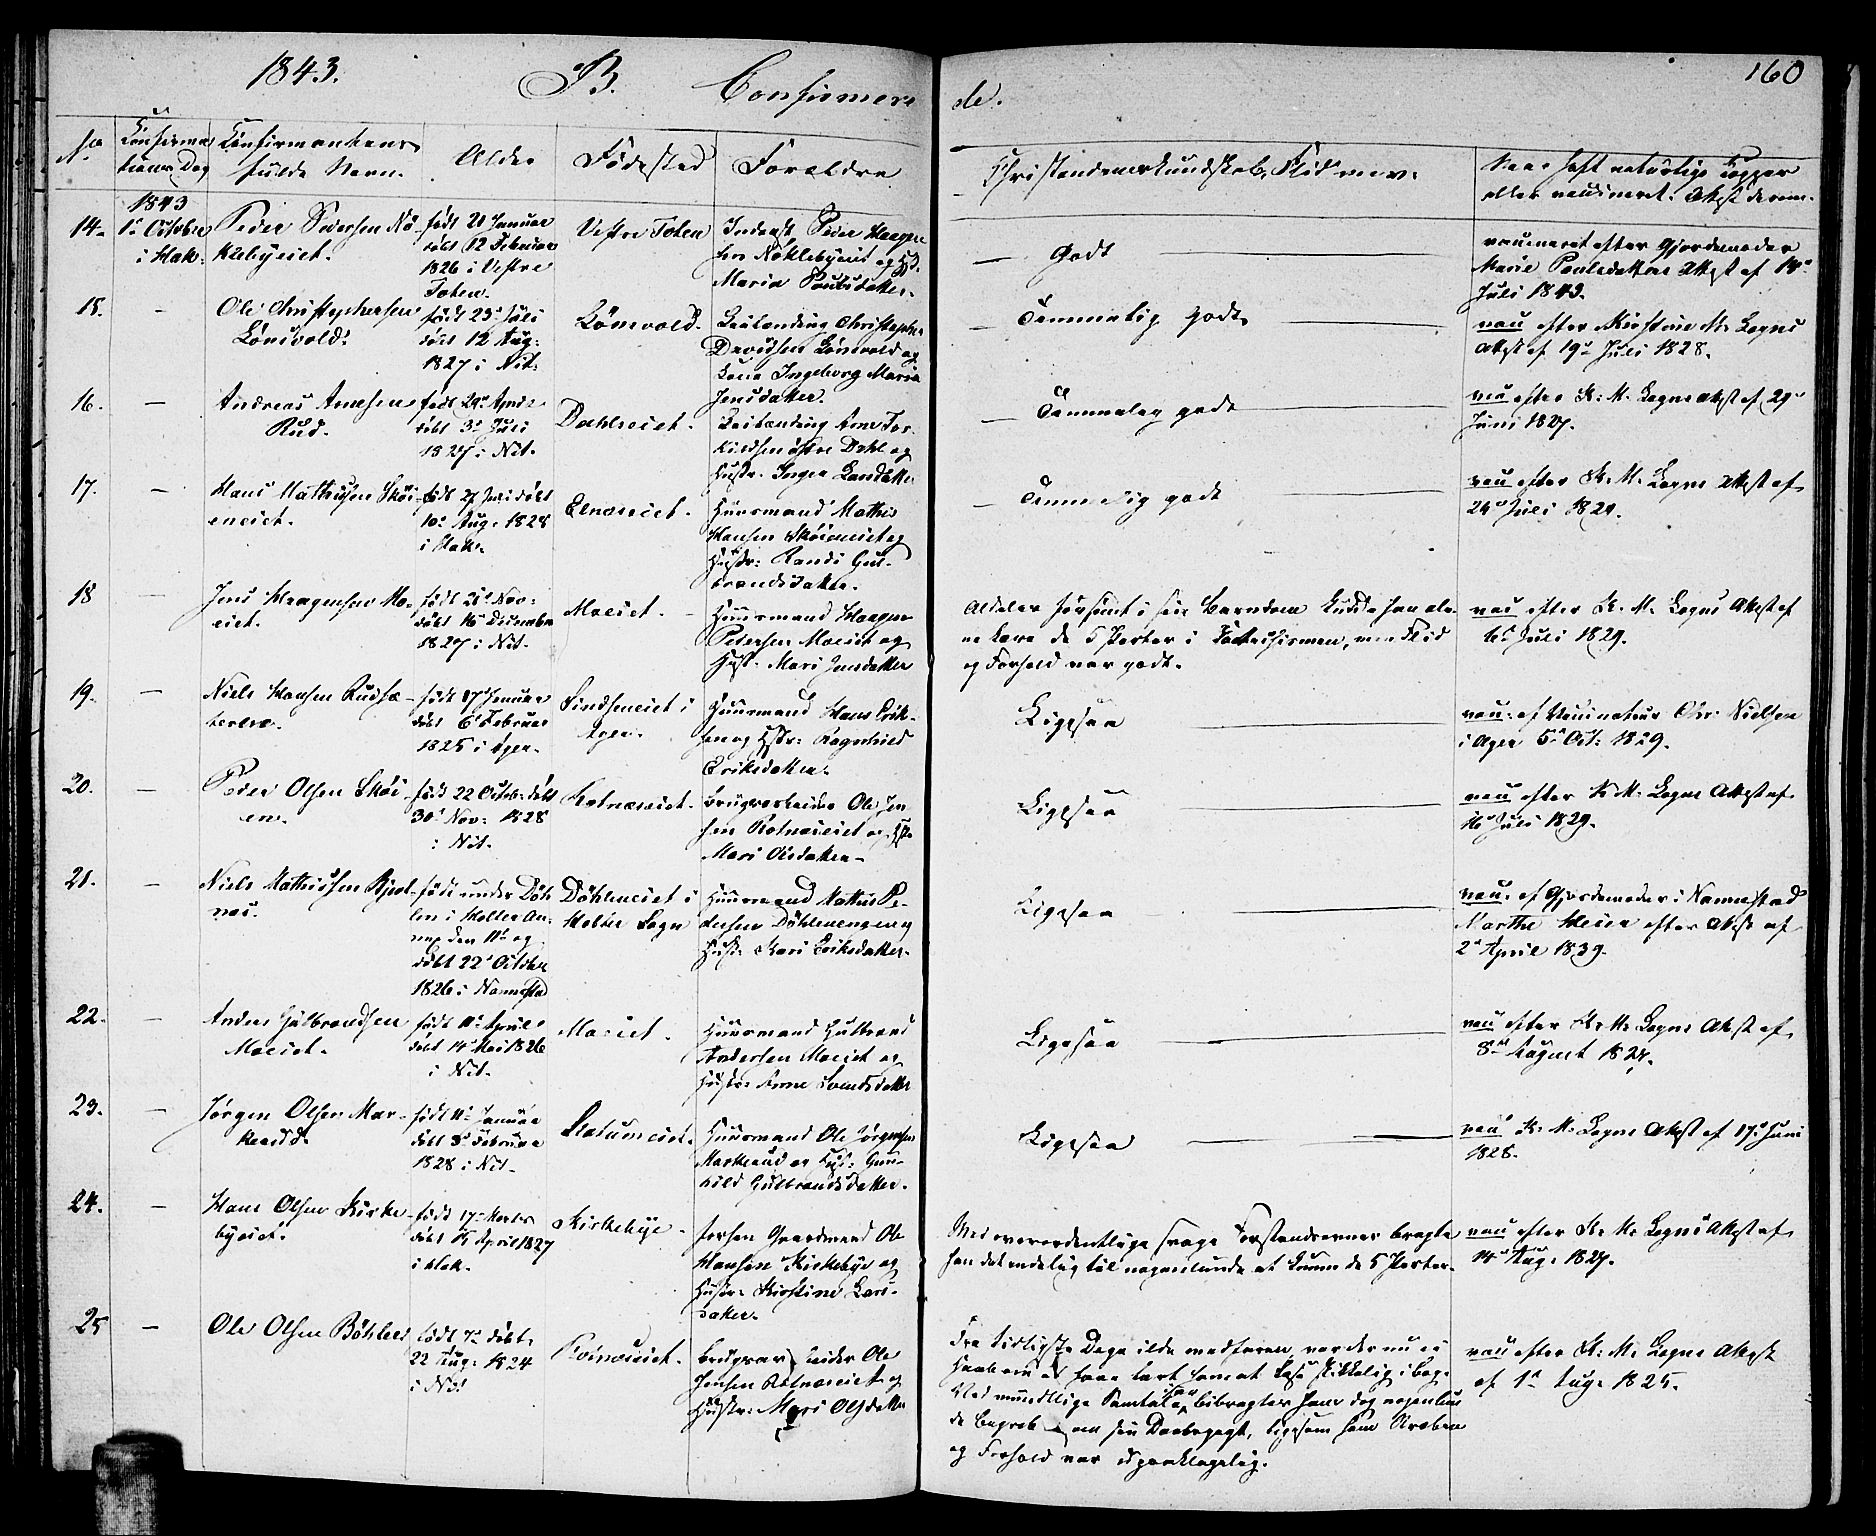 1843. B. Confirmere
de. 160
No
Confirma
tions Dag
Confirmantens
fulde Navn.
Alder
Födested
Forældre
Christendomskundskab, Flid m. v.
Naar haft naturlige Kopper
eller vaccineret. Attest derom.
1843
14.
1e October
i Hak:
Peder Pedersen Nö-
klebyeiet.
født 21 Januar
döbt 12 Februar
1826 i Vestre
Toten.
Vestre Toten
Inderst Peder Haagen-
sen Nöklebyeiet og
Maria Poulsdatter.
Godt
vaccineret efter Gjordemoder
Marie Paulsdatters Attest af 14e
Juli 1843.
15.
Ole Christophersen
Lönsvold.
født 23e Juli
döbt 12 Aug:
1827 i Nit:
Lönsvold.
Leilænding Christopher
Davidsen Lönsvold og
Kone Ingeborg Maria
Jensdatter.
Temmelig godt
vac efter Kirstine M. Lagns
Attest af 19e Juli 1828.
16.
Andreas Arnesen
Rud.
født 29e April
döbt 3e Juli
1827 i Nit.
Dahleiet.
Leilænding Arne Tor-
kildsen østre Dahl og
Hustr. Inger
Temmelig godt
vac efter K: M: Lagns Attest af 29e
Juni 1827.
17.
Hans Mathisen Sköi-
eneiet.
født 27 Juni döbt
10e Aug: 1828
i Hak.
Elnæseiet.
Huusmand Mathis
Hansen Sköieneiet og
Hustr: Randi Gul-
brandsdatter.
Temmelig godt
vac efter K. M. Lagns Attest af
24e Juli 1829.
18
Jens Haagensen Mo-
eiet.
født 21e Nov:
döbt 16 December
1827 i Nit.
Moeiet.
Huusmand Haagen
Pedersen Moeiet og
Hust. Mari Jensdatter
Aldeles forsömt i sin Barndom kunde han ale-
ne lære de 5 Parter i Catechismen, men Flid
og Forhold var godt.
vac efter K. M. Lagns Attest af
6e Juli 1829.
19.
Niels Hansen Rudsæ-
teren.
født 17e Januar
döbt 6e Februar
1825 i Ager.
Sindseneiet i
Ager.
Huusmand Hans Erik-
sen og Hstr: Ragnhild
Eriksdatter.
Ligesaa
vac: af Vaccinateur Chr: Nielsen
i Ager 5e Oct: 1829.
20.
Peder Olsen Sköi-
en.
født 22 Octob: döbt
30e Nov: 1828
i Nit.
Rotnæseiet.
Brugsarbeider Ole Jen-
sen Rotnæseiet og Hstr
Mari Olsdatter.
Ligesaa
vac efter K. M. Lagns Attest af
16e Juli 1829.
21.
Niels Mathissen Kjel-
næs.
født under Döh-
len i Holter An-
nex den 11te og
döbt 22e October
1826 i Nannestad
Döhleneiet i
Holter Sogn
Huusmand Mathis Pe-
dersen Döhlenengen og
Hustr: Kari Eriksdatter.
Ligesaa
vac: af Gjordemoder i Nannestad
Marthe Meier efter Attest af
2e April 1839.
22.
Anders Gulbrandsen
Moeiet.
født 11e April
döbt 14e Mai 1826
i Nit.
Moeiet.
Huusmand Gulbrand
Andersen Moeiet og
Hustr: Anne Svendsdatter
Ligesaa
vac efter K. M. Lagns Attest af
8e August 1827.
23.
Jörgen Olsen Mar-
kerud.
født 11e Januar
döbt 3e Februar
1828 i Nit.
Slatumeiet.
Huusmand Ole Jörgensen
Markerud og Hust: Gun-
hild Gulbrandsdatter.
Ligesaa
vac K. M. Lagns Attest af 17e Juni
1828.
24.
Hans Olsen Kirke-
byeiet.
født 17e Marts
döbt 15 April 1827
i Hak.
Kirkebye.
forhen Gaardmand Ole
Hansen Kirkebye og
Hustr: Kirstine Lars-
datter.
Med overordentlige svage Forstandsevner bragte
han det endelig til nogenlunde at kunne de 5 Parter.
vac efter K. M. Lagns Attest af
14e Aug: 1827.
25
Ole Olsen Böhler
født 7e döbt
22 Aug: 1824
i Nit
Rotnæseiet.
Brugsarbeider Ole
Jensen Rotnæseiet og
Hustr: Mari Olsdatter
Fra tidligste Dage ilde medfaren, var der nu ei
Haab om at faae lært ham at læse skikkelig i Bog.
Ved mundtlige Samtaler bibragtes ham dog nogenlun
de Begreb om sin Daabspagt, ligesom hans Stræben
og Forhold var upaaklagelig.
vac efter K. M. Lagns Attest
af 1e Aug: 1825.